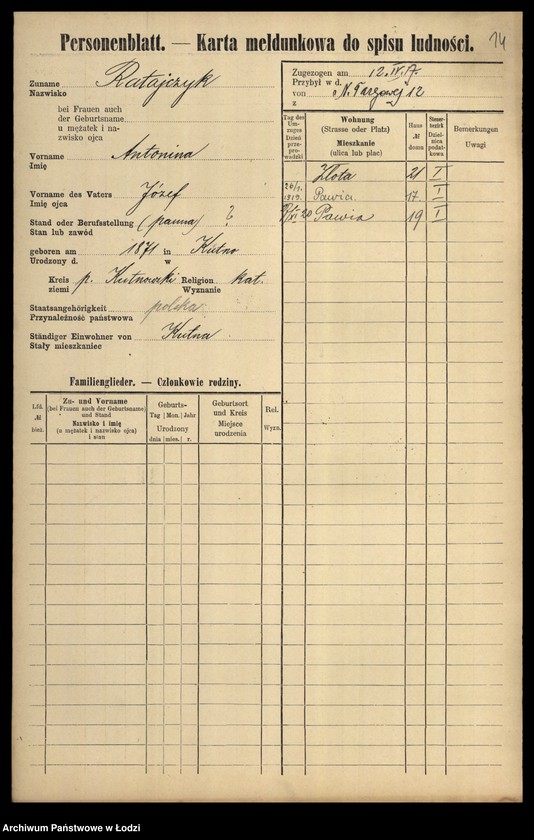 Personenblatt. — Karta meldunkowa do spisu ludności.
14
Zuname
Nazwisko
Ratajczyk
bei Frauen auch
der Geburtsname
u mężatek i na-
zwisko ojca
Vorname
Imię
Antonina
Vorname des Vaters
Imię ojca
Józef
Stand oder Berufsstellung (panna) ?
Stan lub zawód
geboren am 1871 in Kutno
Urodzony d. w
Kreis p. Kutnowski Religion kat.
ziemi Wyznanie
Staatsangehörigkeit polska
Przynależność państwowa
Ständiger Einwohner von Kutna
Stały mieszkaniec
Zugezogen am 12.IV.17.
Przybył w d.
von N. Targowej 12
z
Tag des Um-zuges
Dzień prze-prowadzki
Wohnung
(Strasse oder Platz)
Mieszkanie
(ulica lub plac)
Haus №
doma
Steuer-bezirk
Dzielnica podat-kowa
Bemerkungen
Uwagi
Złota 21 I
1919. Pawia 17 I
20 Pawia 19 I
Familienglieder. — Członkowie rodziny.
Lfd. № bież.
Zu- und Vorname
(bei Frauen auch der Geburtsname)
und Stand
Nazwisko i imię
(u mężatek i nazwisko ojca)
i stan
Geburts-
Tag | Mon. | Jahr
Urodzony
dnia | mies. | r.
Geburtsort
und Kreis
Miejsce
urodzenia
Rel.
Wyzn.
Archiwum Państwowe w Łodzi